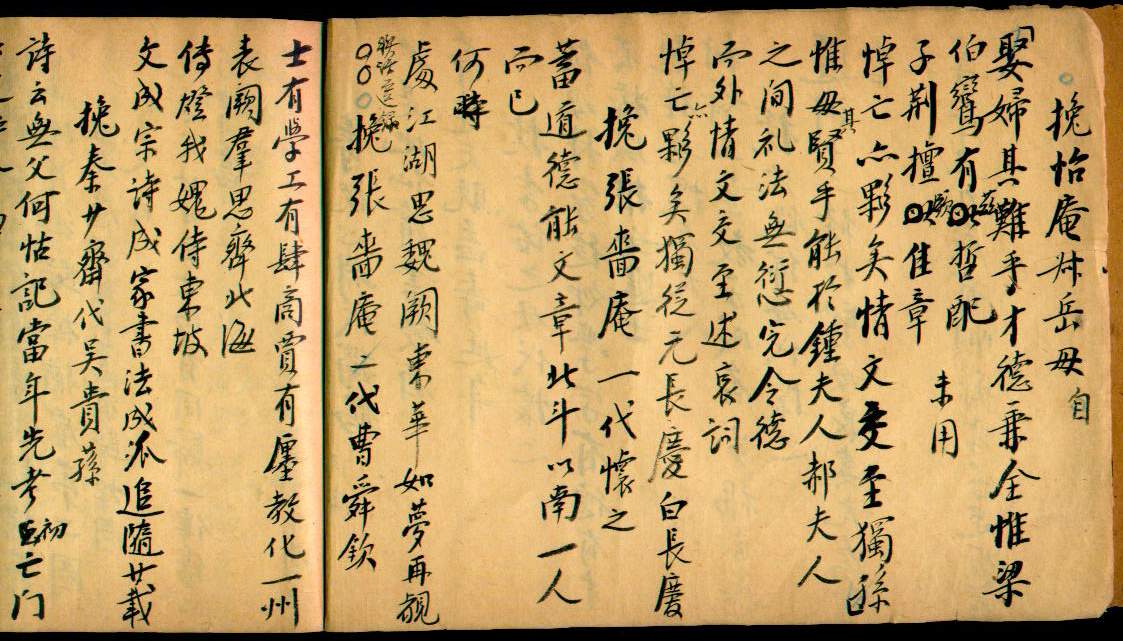 挽怡庵叔岳母 自
娶婦其難乎才德秉全惟梁
伯鸞有茲哲配
子荆擅佳章 未用
悼亡亦夥矣情文交至獨孫
惟母賢乎能於鍾夫人郝夫人
之間礼法無愆完令德
而外情文交至述哀詞
悼亡亦夥矣獨從元長慶白長慶
挽張嗇庵 一代懷之
蓄道德能文章北斗以南一人
而已
處江湖思魏闕東華如夢再覩
何時
挽張嗇庵 二代曹舜欽
士有學工有肆商賈有廛教化一州
表闕羣思齊北海
文成宗詩成家書法成派追隨廿載
侍燈我媿侍東坡
挽秦廿齋代吴貴蓀
詩云無父何怙記當年先考初亡门